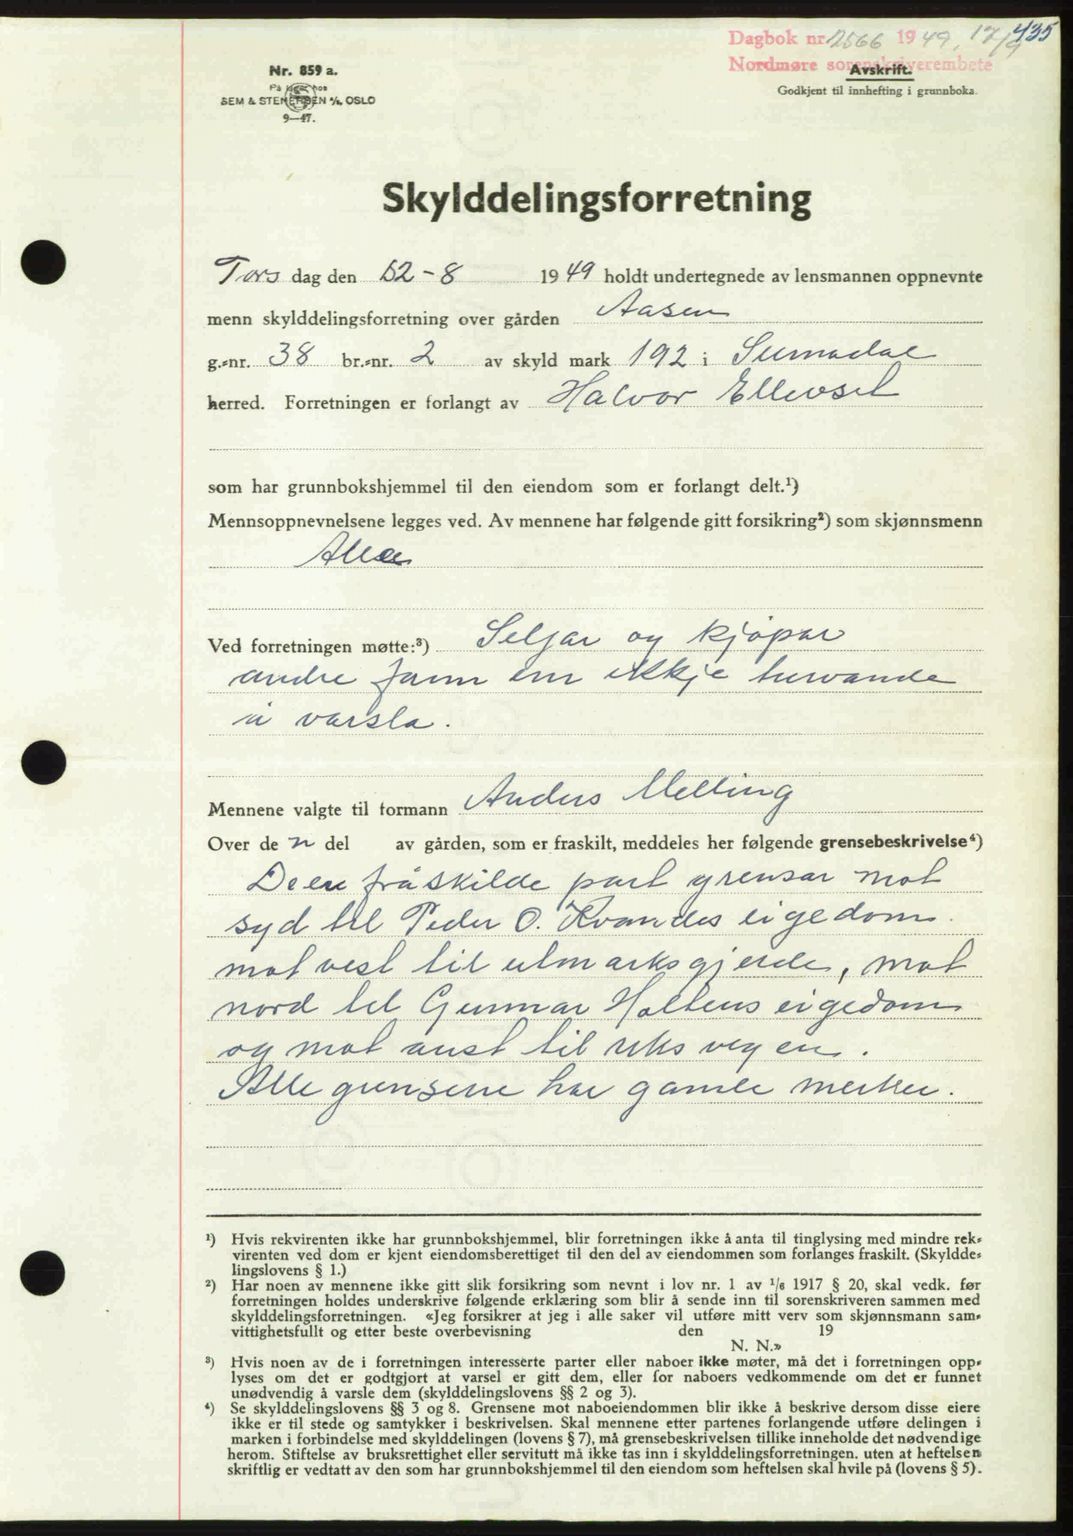 435
Dagbok nr. 2566 1949, 17/9
Nordmøre sorenskriverembete
Avskrift.
Godkjent til innhefting i grunnboka.
Nr. 859 a.
På lager hos
SEM & STENERSEN A/S, OSLO
9—47.
Skylddelingsforretning
Tors dag den 12-8 1949 holdt undertegnede av lensmannen oppnevnte
menn skylddelingsforretning over gården Aasen
g.-nr. 38 br.-nr. 2 av skyld mark 192 i Surnadal
herred. Forretningen er forlangt av Halvor Ellevset
som har grunnbokshjemmel til den eiendom som er forlangt delt.¹)
Mennsoppnevnelsene legges ved. Av mennene har følgende gitt forsikring²) som skjønnsmenn
Alle
Ved forretningen møtte:³) Seljar og kjöpar
andre fann ein ikkje turvande
å varsla.
Mennene valgte til formann Anders Melling
Over de n del av gården, som er fraskilt, meddeles her følgende grensebeskrivelse⁴)
Deen fråskilde part grensar mot
syd til Peder O. Kvandes eigedom.
mot vest til utmarksgjerde, mot
nord til Gunnar Holtens eigedom
og mot aust til riksvegen.
Alle grensene har gamle merker.
¹) Hvis rekvirenten ikke har grunnbokshjemmel, blir forretningen ikke å anta til tinglysing med mindre rek-
virenten ved dom er kjent eiendomsberettiget til den del av eiendommen som forlanges fraskilt. (Skyldde-
lingslovens § 1.)
²) Har noen av mennene ikke gitt slik forsikring som nevnt i lov nr. 1 av ¹/₆ 1917 § 20, skal vedk. før
forretningen holdes underskrive følgende erklæring som blir å sende inn til sorenskriveren sammen med
skylddelingsforretningen. «Jeg forsikrer at jeg i alle saker vil utføre mitt verv som skjønnsmann sam-
vittighetsfullt og etter beste overbevisning den 19
N. N.»
³) Hvis noen av de i forretningen interesserte parter eller naboer ikke møter, må det i forretningen opp-
lyses om det er godtgjort at varsel er gitt dem, eller for naboers vedkommende om det er funnet
unødvendig å varsle dem (skylddelingslovens §§ 2 og 3).
⁴) Se skylddelingslovens §§ 3 og 8. Grensene mot naboeiendommen blir ikke å beskrive dersom disse eiere
ikke er til stede og samtykker i beskrivelsen. Skal mennene etter partenes forlangende utføre delingen i
marken i forbindelse med skylddelingen (lovens § 7), må grensebeskrivelsen tillike inneholde det nødvendige
herom. Stiftelse av bruksrettighet eller servitutt må ikke tas inn i skylddelingsforretningen, uten at heftelsen
skriftlig er vedtatt av den som har grunnbokshjemmel til den eiendom som heftelsen skal hvile på (lovens § 5).